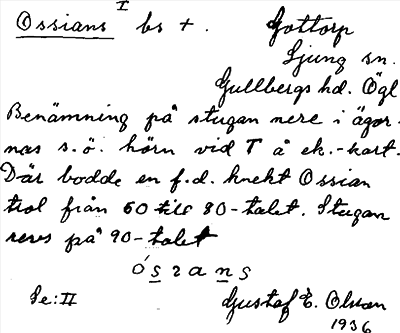 Ossians I bs +. Gottorp
Ljung sn.
Gullbergs hd. Ögl
Benämning på stugan nere i ägor-
nas s.ö. hörn vid T å ek.-kart.
Där bodde en f.d. knekt Ossian
trol från 60 till 80-talet. Stugan
revs på 90-talet
ósrans
Se: II Gustaf E. Olsson
1936